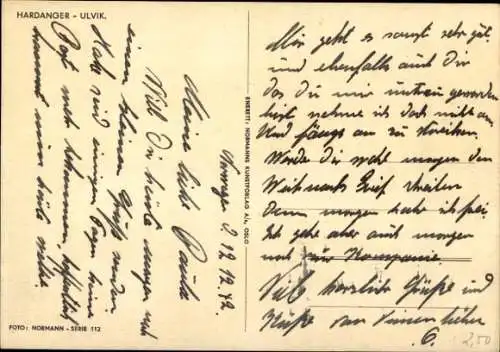 HARDANGER - ULVIK.
Norwegen 2 12.12.42
Meine liebe Paula
Will Dir heute morgen noch
einen kleinen Gruß senden
Habe seid einigen Tagen keine
Post mehr bekommen, hoffentlich
kommt nun heute welche.
ENERETT: NORMANNS KUNSTFORLAG A/S, OSLO
Mir geht es sonst sehr gut
und ebenfalls auch Dir
das Du mir untreu geworden
bist nehme ich doch nicht an
Und fängst an zu streiken.
Werde Dir wohl morgen den
Weihnachts Brief schreiben
Denn morgen habe ich frei.
Ich gehe aber auch morgen
nach zur Kompanie.
Viele herzliche Grüße und
Küße von Deinem lieben
G.
2,50
FOTO: NORMANN - SERIE 112